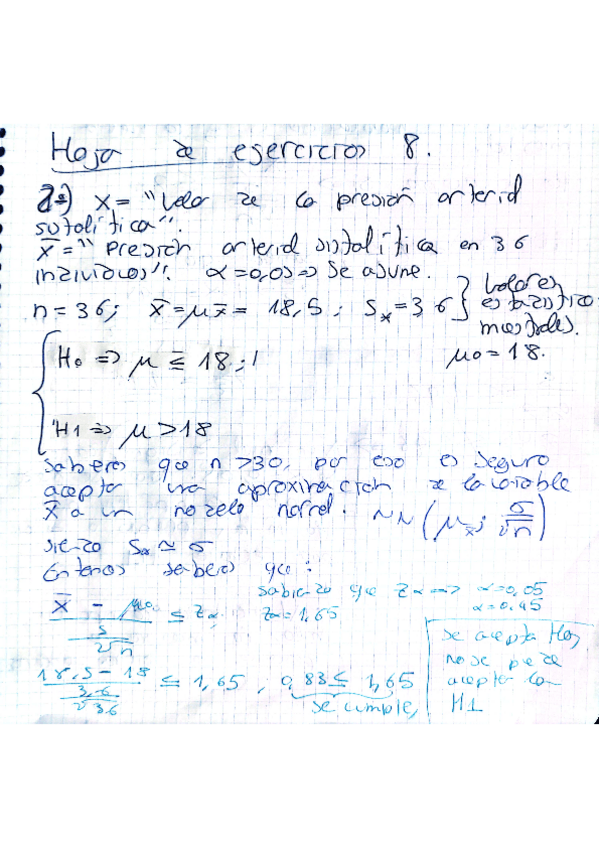 Hoja de ejercicios 8.
1º) X = "Valor de la presión arterial
sistolítica".
X̄ = "Presión arterial sistolítica en 36
individuos". α = 0,05 => Se asume.
n = 36; X̄ = μx̄ = 18,5; Sx = 3 6 } Valores estadísticos muestrales.
μ0 = 18.
H0 => μ ≤ 18 ;
H1 => μ > 18
sabemos que n > 30, por eso es seguro
aceptar una aproximación de la variable
X̄ a un modelo normal. ~ N (μx̄; σ/√n)
siendo Sx ≃ σ
Entonces sabemos que:
sabiendo que Zα => α = 0,05
α = 0.95
(X̄ - μ0)/(s/√n) ≤ Zα Zα = 1,65
(18,5 - 18)/(3,6/√36) ≤ 1,65 , 0,83 ≤ 1,65
se cumple,
Se acepta H0,
no se puede
aceptar la
H1